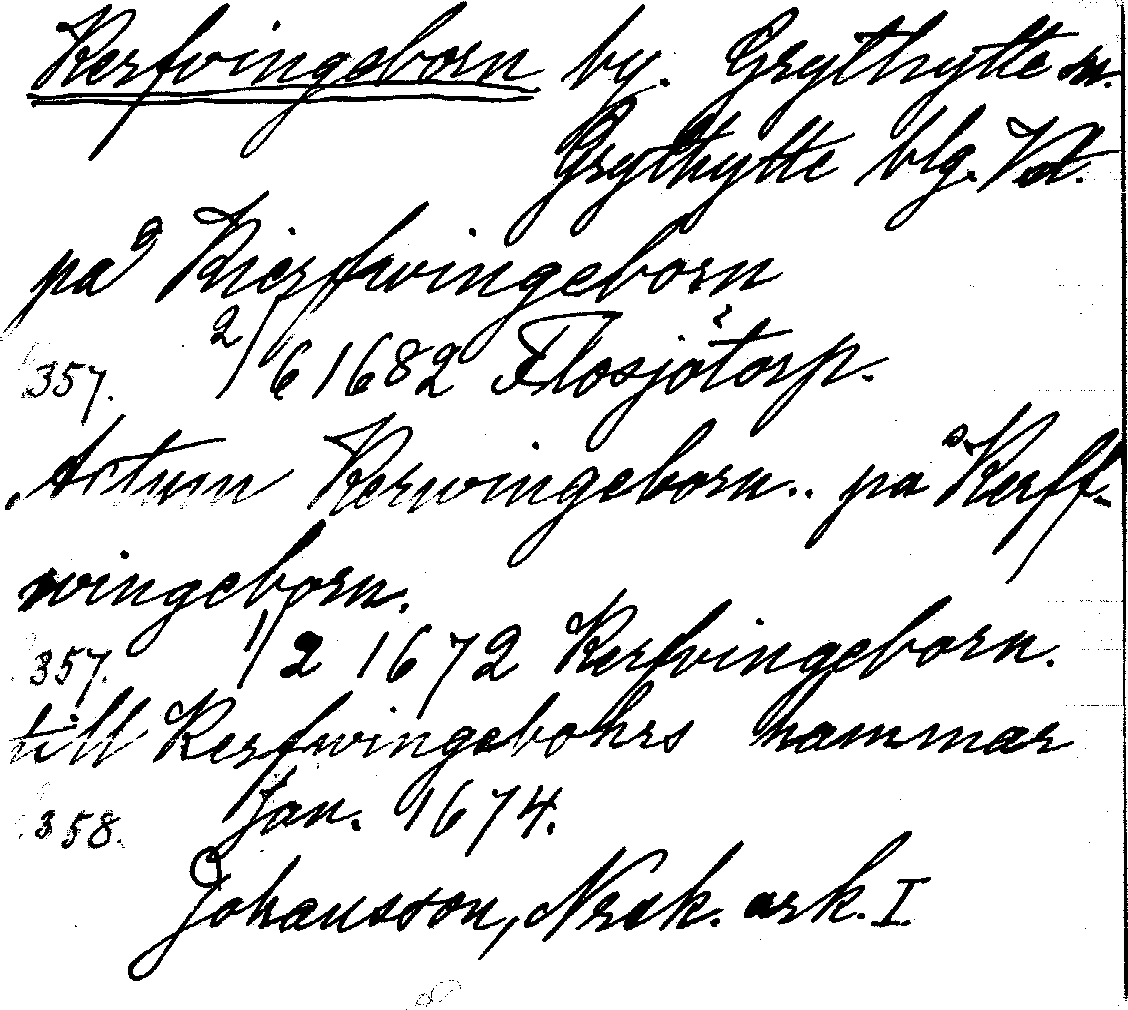 Kerfvingeborn by. Grythytte sn.
Grythytte blg. Vd.
på Kierfwingeborn
357. 2/6 1682 Flosjötorp.
Actum Kerwingeborn.. på Kerff-
wingeborn.
357. 1/2 1672 Kerfvingeborn.
till Kerfwingebohrs hammar
358. Jan. 1674.
Johansson, Nrek. ark. I